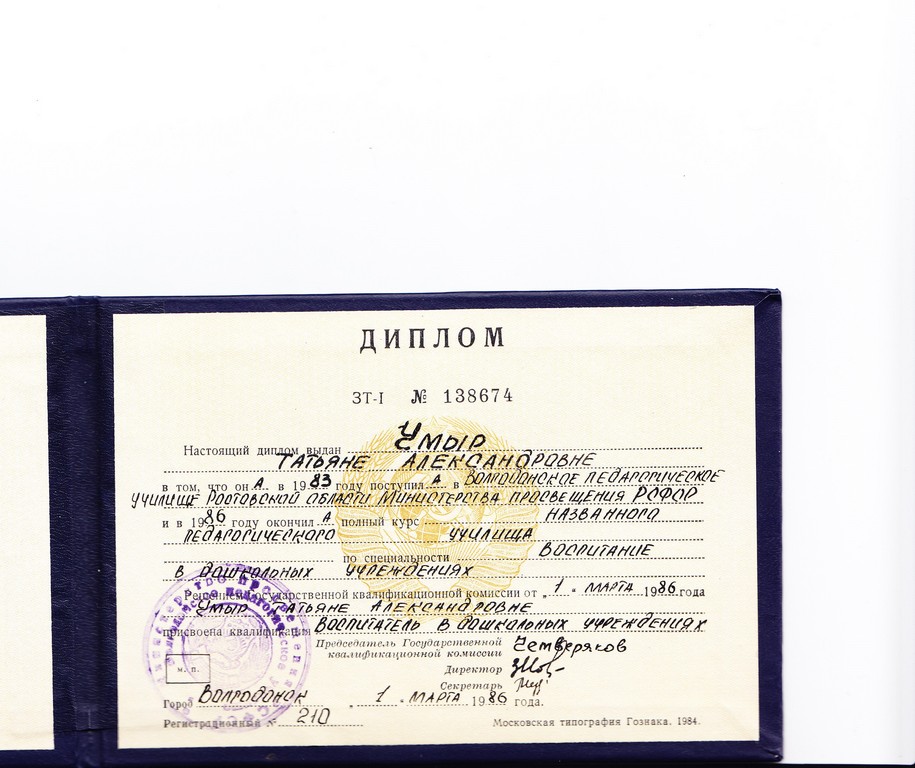 ДИПЛОМ
ЗТ-I № 138674
Настоящий диплом выдан Умыр
Татьяне Александровне
в том, что он а в 1983 году поступил а в Волгодонское педагогическое
училище Ростовской области Министерства просвещения РСФСР
и в 1986 году окончил а полный курс названного
педагогического училища
по специальности воспитание
в дошкольных учреждениях
Решением Государственной квалификационной комиссии от „1" марта 1986 года
Умыр Татьяне Александровне
присвоена квалификация воспитатель в дошкольных учреждениях
Председатель Государственной
квалификационной комиссии Четверяков
Директор
Секретарь
м. п.
Город Волгодонск „1" марта 1986 года.
Регистрационный № 210
Московская типография Гознака. 1984.